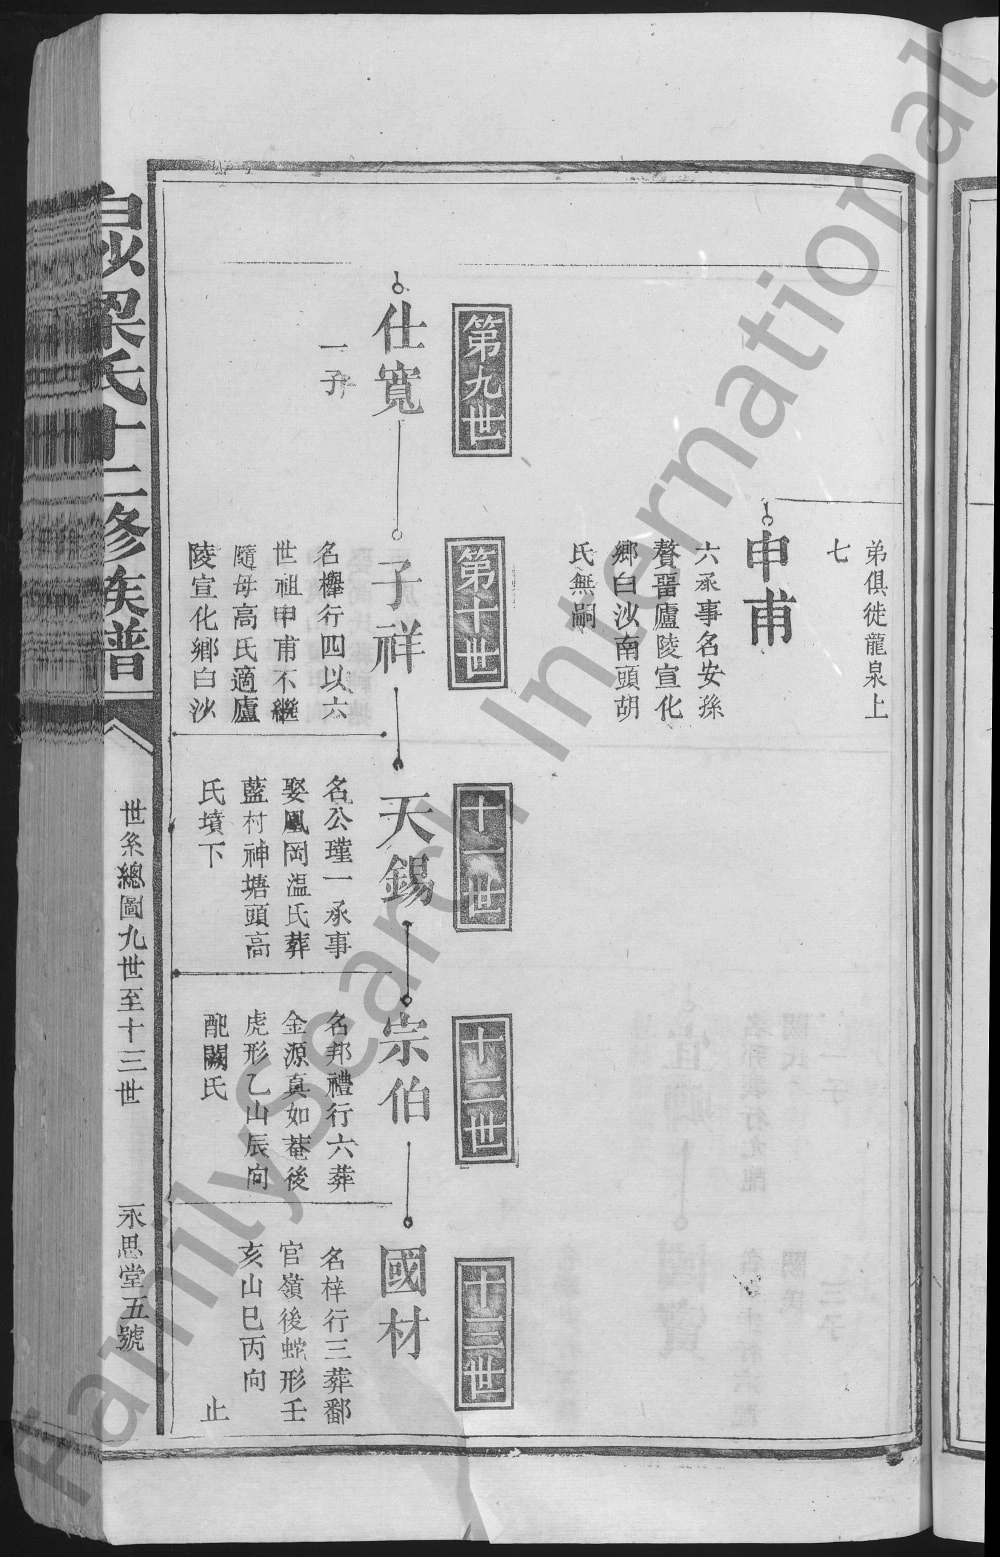 弟俱徙龍泉上
七
申甫
六承事名安孫
贅畱廬陵宣化
鄉白沙南頭胡
氏無嗣
第九世
第十世
十一世
十二世
十三世
仕寬
一子
子祥
名欅行四以六
世祖申甫不繼
隨母高氏適廬
陵宣化鄉白沙
天錫
名公瑾一承事
娶鳳岡溫氏葬
藍村神塘頭高
氏墳下
宗伯
名邦禮行六葬
金源真如菴後
虎形乙山辰向
配闕氏
國材
名梓行三葬鄱
官嶺後蛇形壬
亥山巳丙向
止
白沙梁氏十二修族譜
世系總圖九世至十三世
永思堂五號
FamilySearch International